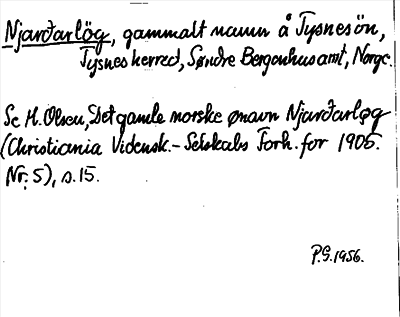 Njarðarlög, gammalt namn å Tysnesön,
Tysnes herred, Søndre Bergenhus amt, Norge.
Se M. Olsen, Det gamle norske ønavn Njarðarlǫg
(Christiania Vidensk.-Selskabs Forh. for 1905.
Nr. 5), s. 15.
P.G. 1956.